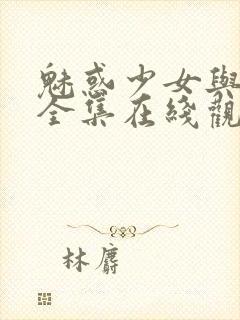 魅惑少女與
全集在綫觀
林麝